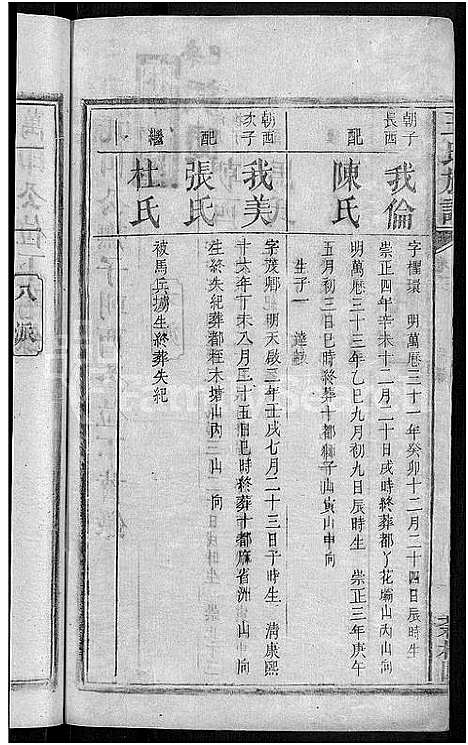 王氏族譜
朝西長子
我倫
字 環 明萬曆三十一年癸卯十二月二十四日辰時生
崇正四年辛未十二月二十日戌時終葬都丫花 山丙山 向
配
陳氏
明萬曆三十三年乙巳九月初九日辰時生 崇正三年庚午
五月初三日巳時終葬十都獅子山寅山申向
生子一
朝西次子
我美
字茂卿 明天啟二年壬戌七月二十三日子時生 清康熙
十 年丁未八月二十五日巳時終葬十都麻省洲 山 向
配
張氏
生終失紀葬都桎木塘山丙 山 向
繼
杜氏
被馬兵擄生終葬失紀
萬印公位下
八派